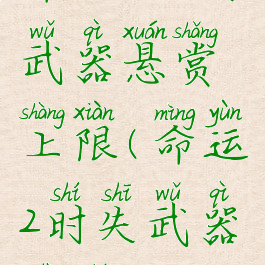 wǔ qì xuán shǎng
武器悬赏
shàng xiàn mìng yùn
上限(命运
shí shī wǔ qì
2时失武器